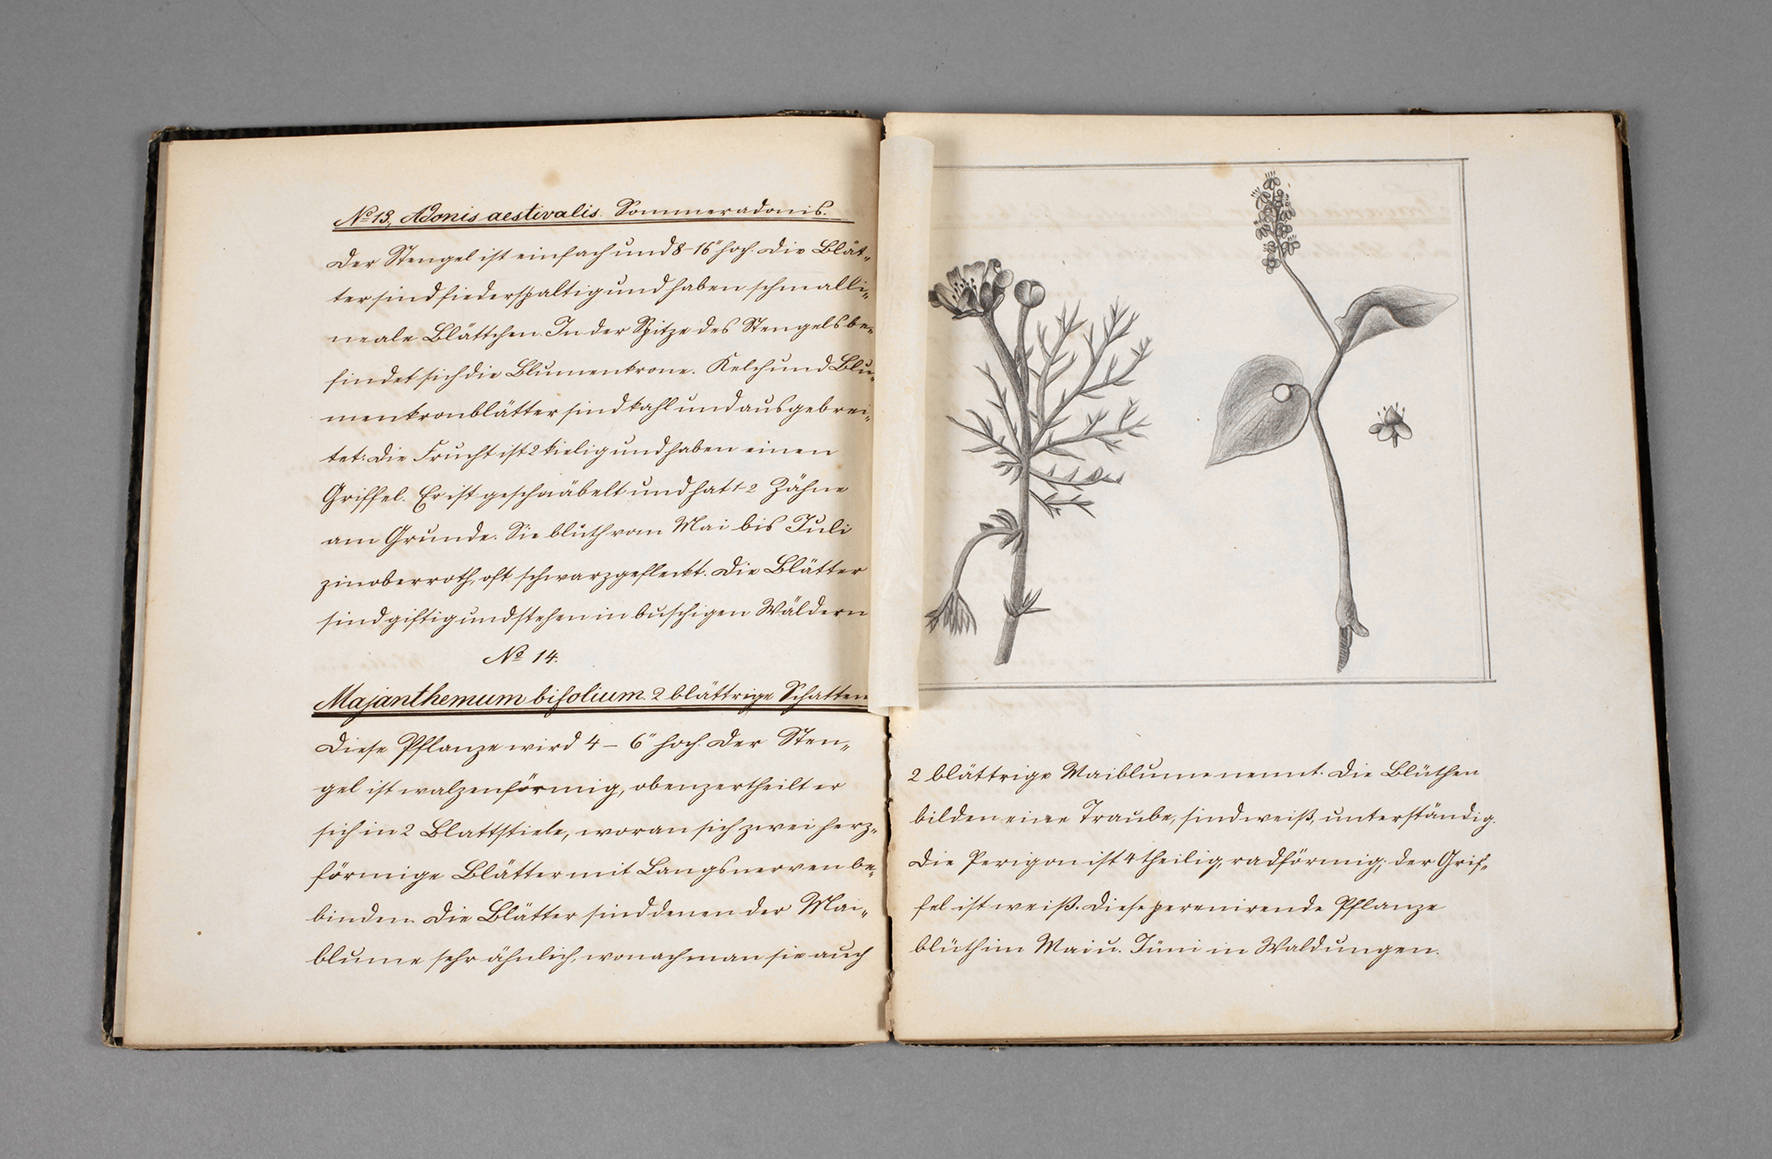 No 13, Adonis aestivalis. Sommeradonis.
Der Stengel ist einfach und 8-16" hoch. Die Blät„
ter sind fiederspaltig und haben schmalli„
neale Blättchen. In der Spitze des Stengels be„
findet sich die Blumenkrone. Kelch und Blu„
menkronblätter sind kahl und ausgebrei„
tet. Die Frucht ist 2 kielig und haben einen
Griffel. Er ist geschnäbelt und hat 1-2 Zähne
am Grunde. Sie blüth vom Mai bis Juli
zinoberroth, oft schwarzgefleckt. Die Blätter
sind giftig und stehen in buschigen Wäldern
No 14.
Majanthemum bifolium. 2 blättrige Schatten
Diese Pflanze wird 4 – 6" hoch. Der Sten„
gel ist walzenförmig, oben zertheilt er
sich in 2 Blattstiele, woran sich zwei herz„
förmige Blätter mit Langsnerven be„
binden. Die Blätter sind denen der Mai„
blume sehr ähnlich, wonach man sie auch
2 blättrige Maiblume nennt. Die Blüthen
bilden eine Traube, sind weiß, unterständig.
Die Perigon ist 4 theilig, radförmig; der Grif„
fel ist weiß. Diese perenirende Pflanze
blüth im Mai u. Juni in Waldungen.